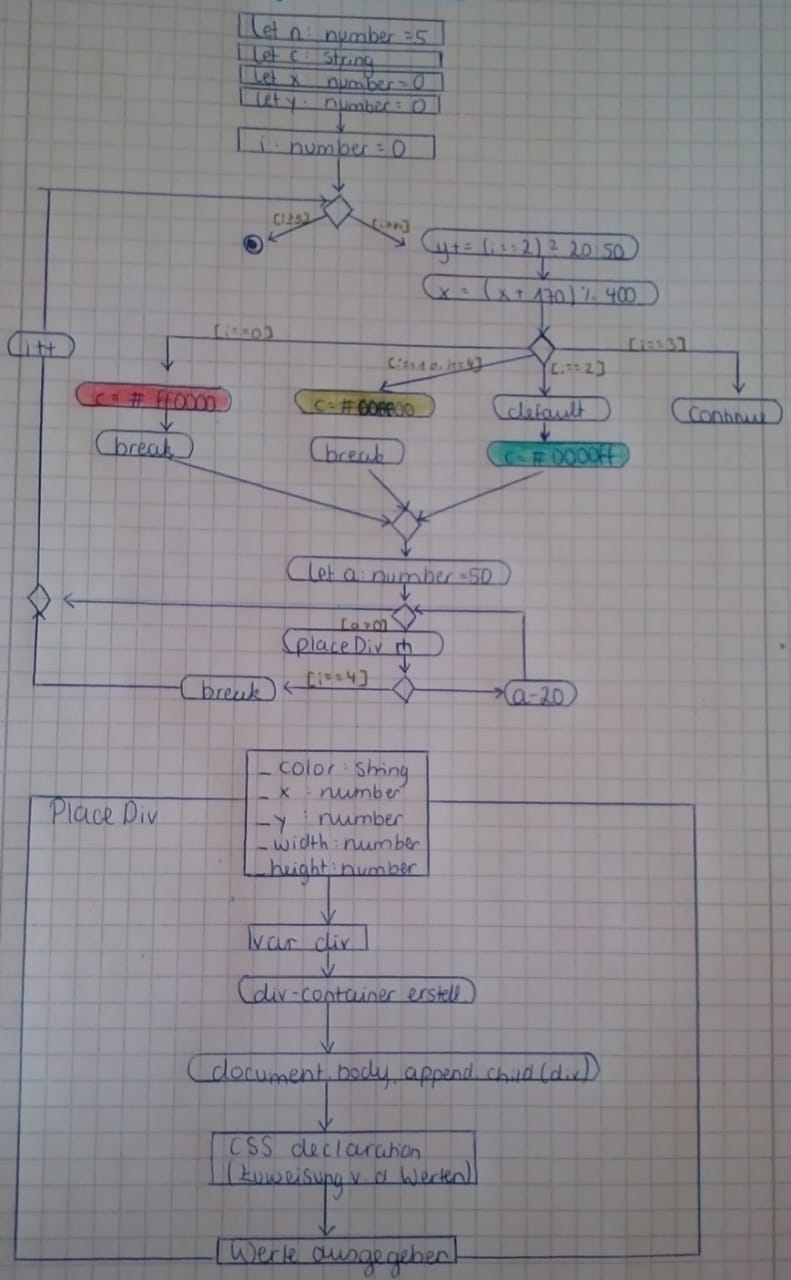 let n: number = 5
let c: string
let x: number = 0
let y: number = 0
i: number = 0
y+= (i==2)? 20:50
x = (x + 170) % 400
i++
[i==0]
[i==3]
[i==2]
c = # ff0000
default
continue
break
break
c = # 0000ff
let a: number = 50
[a>0]
placeDiv
[i==4]
break
a-20
_ color: string
_ x : number
_ y : number
_ width: number
_ height: number
Place Div
var div
div-container erstell
document. body. append. child (div)
CSS declaration
(Zuweisung v. d Werten)
Werte ausgegeben